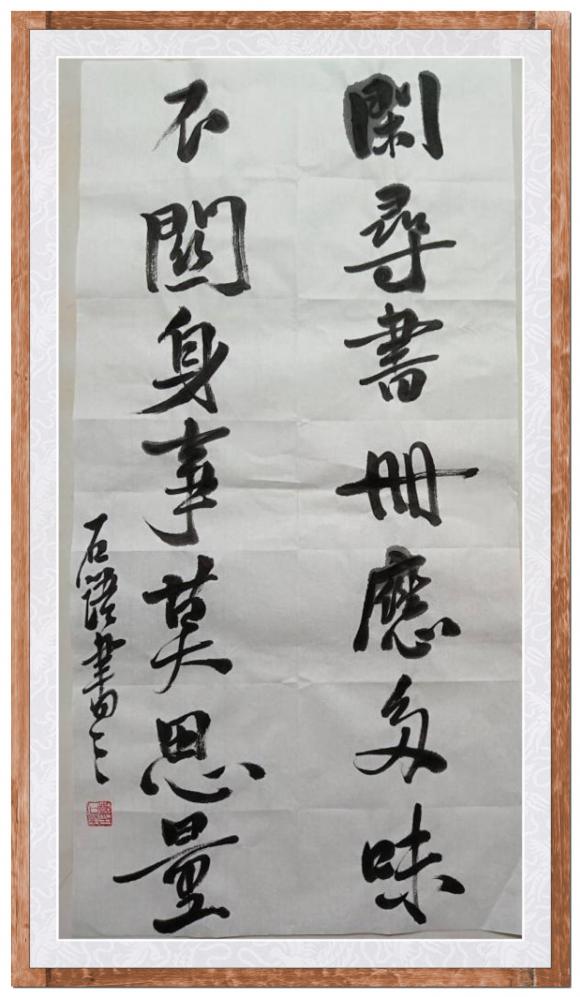 閑尋書冊應多味
不關身事莫思量
石語書之